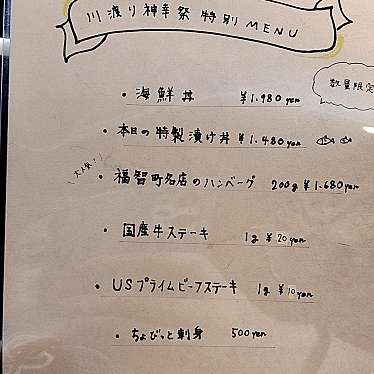 川渡り神幸祭 特別 MENU
数量限定
・海鮮丼 ¥1,980yen
・本日の特製漬け丼 ¥1,480yen
大人気!!
・福智町名店のハンバーグ 200g ¥1,680yen
・国産牛ステーキ 1g ¥20yen
・USプライムビーフステーキ 1g ¥10yen
・ちょびっと刺身 500yen